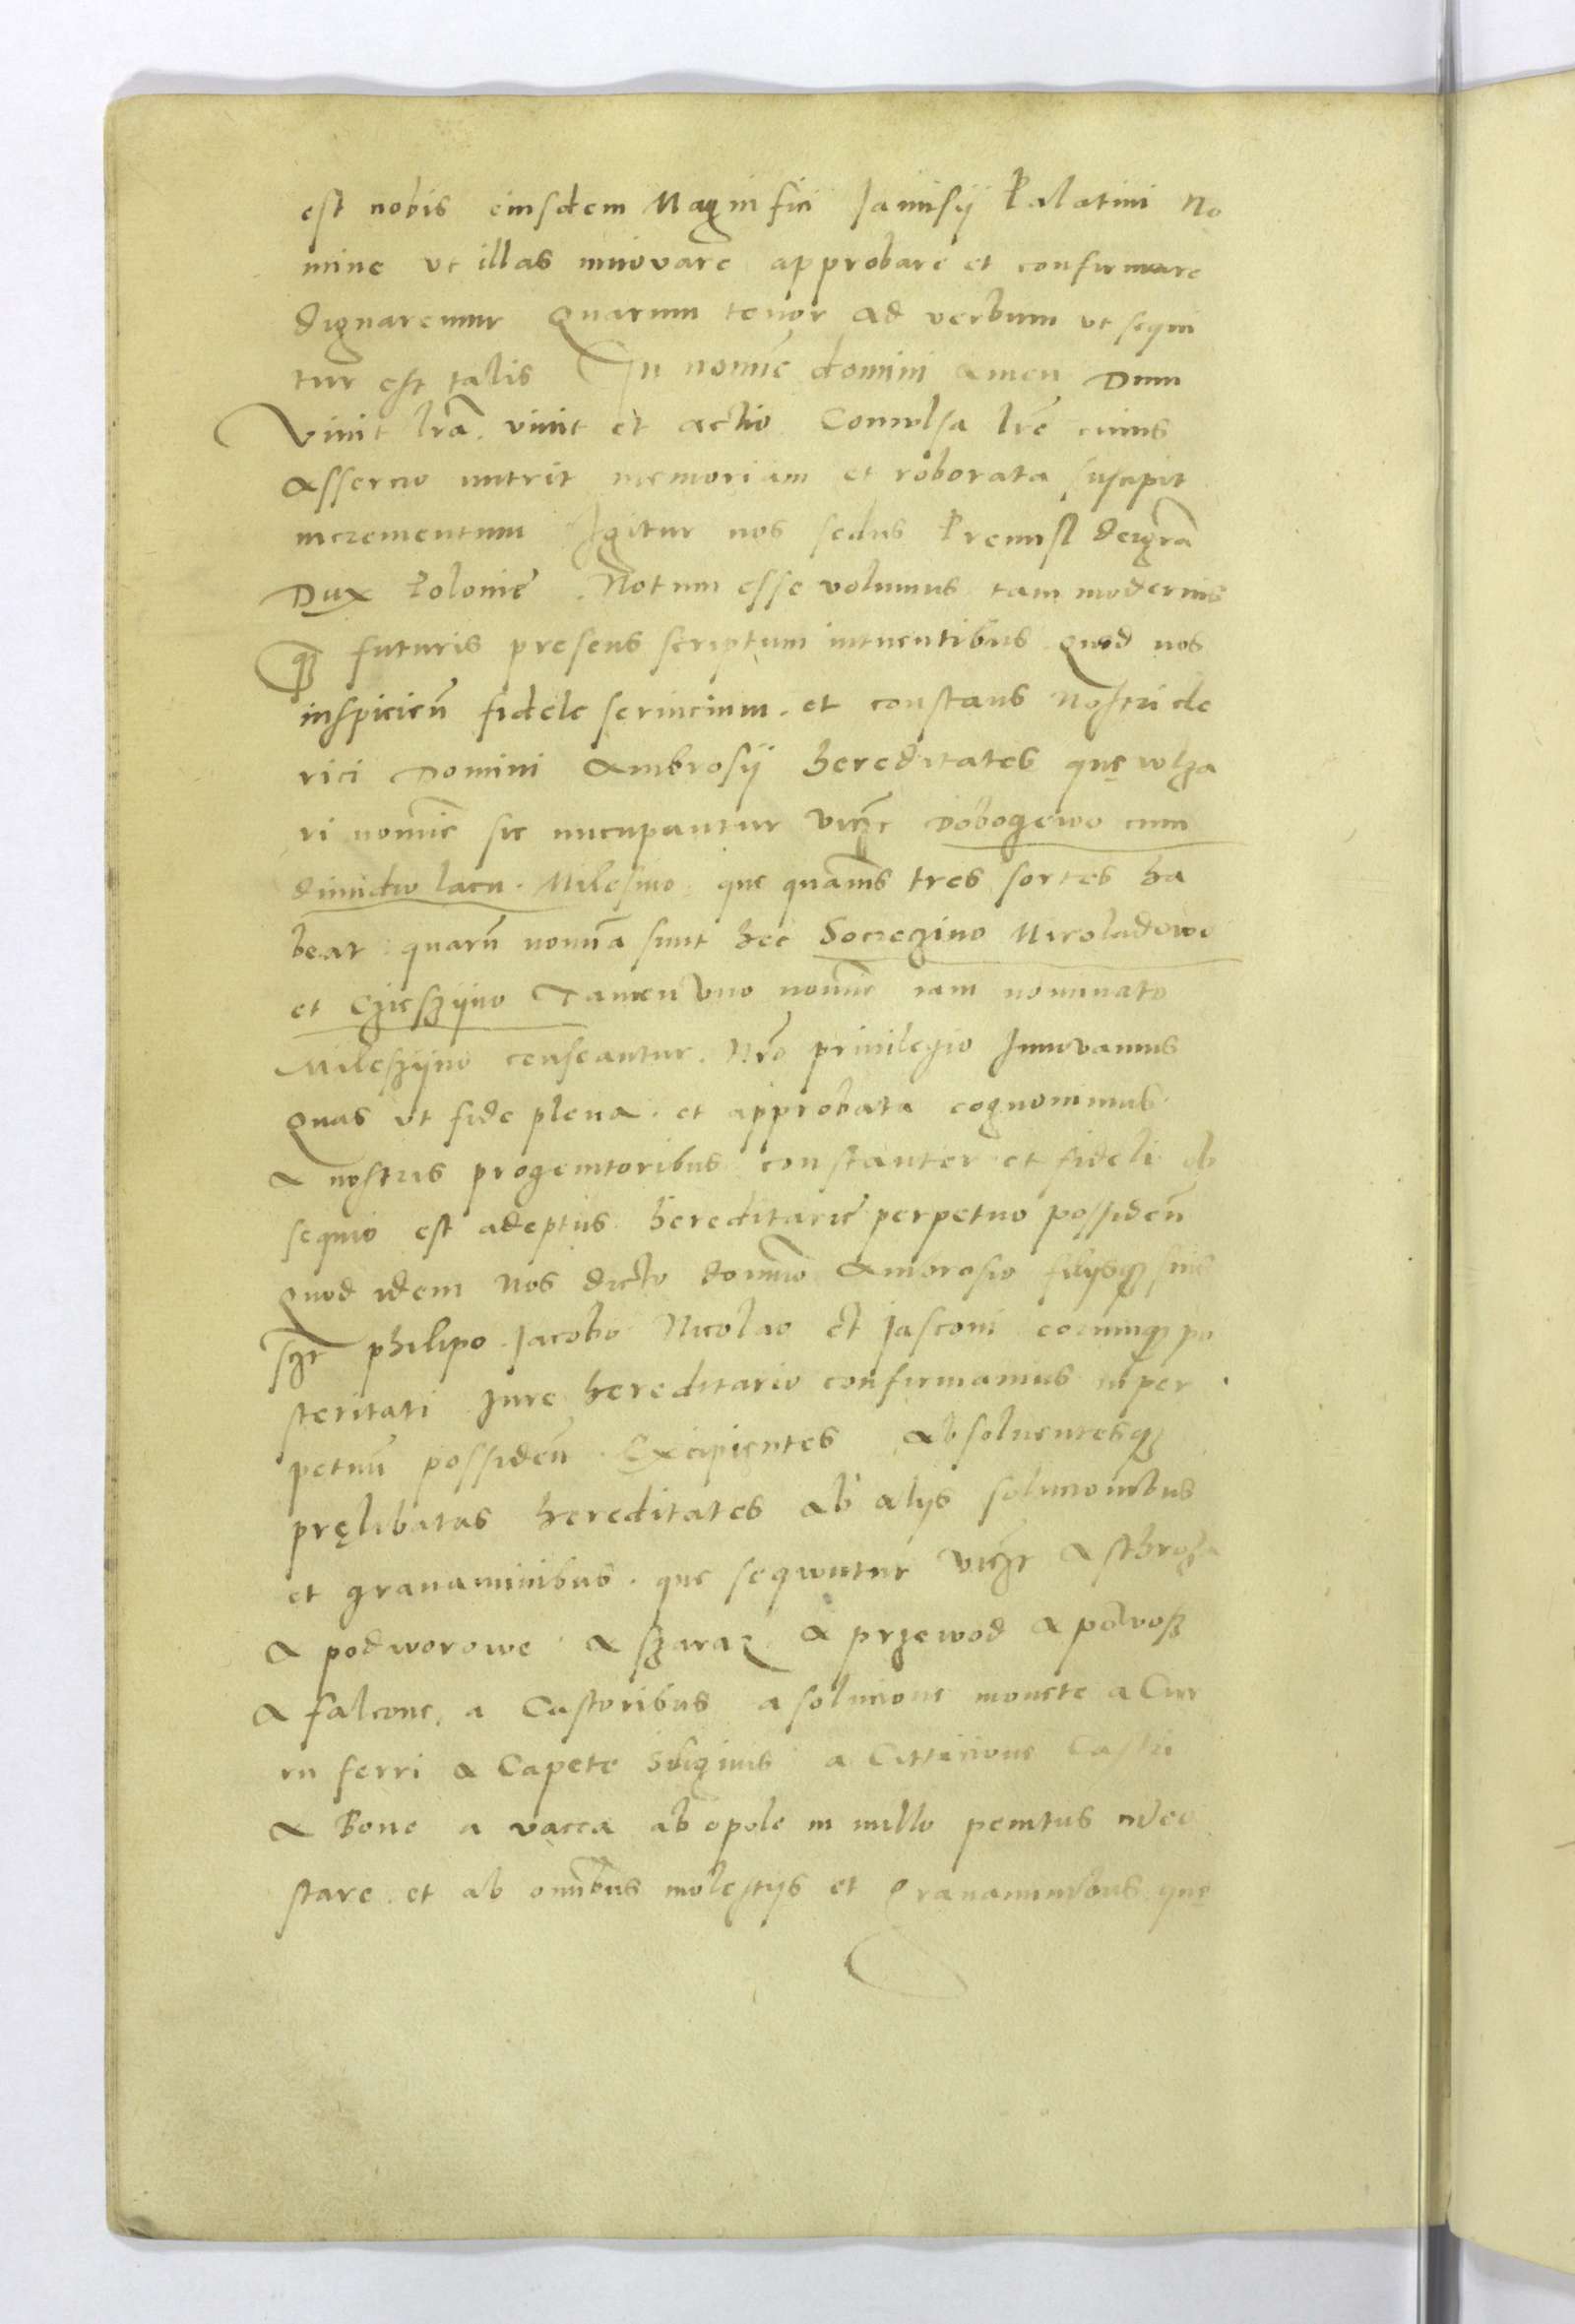 est nobis eiusdem Magnifici Janusij Palatini No
mine vt illas innovare approbare et confirmare
dignaremur Quarum tenor ad verbum vt sequi
tur est talis In nomine domini amen Dum
viuit lra. viuit et actio Conuulsa lre cuius
assercio nutrit memoriam et roborata suscipit
incrementum Igitur nos sedus Premisl dei gra
Dux Polonie. Notum esse volumus tam modernis
qz futuris presens scriptum intuentibus Quod nos
inspicien fidele seruicium. et constans nostri cle
rici Domini Ambrosij hereditates quę wlga
ri nomine sic nuncupantur vicz Dobogewo cum
dimidio lacu. Milesino que quamuis tres sortes ha
beat quaru nomina sunt hec Soczezino Miroladowo
et Cziesziino Tamen vno nomine iam nominato
Mileszijno censeantur. Nro priuilegio Innovamus
Quas vt fide plena. et approbata cognouimus.
a nostris progenitoribus constanter et fideli ob
sequio est adeptus. hereditarie perpetuo possiden
Quod idem nos dicto domino Ambrosio filijsqz suis
scz philipo Jacobo Nicolao et Jasconi eorumqz po
steritati Jure hereditario confirmamus in per
petuu possiden. Excipientes Absoluentesqz
pręlibatas hereditates ab alijs solucionibus
et grauaminibus. que sequntur vicz A sthroza
a podworowe a szaraz a przewod a powosz
a falcone, a Castoribus a solucione monete a Cur
ru ferri a Capete a Cittacione Castri
a Boue a vacca ab opole in nullo penitus
stare. et ab omnibus molestijs et grauaminibus quę